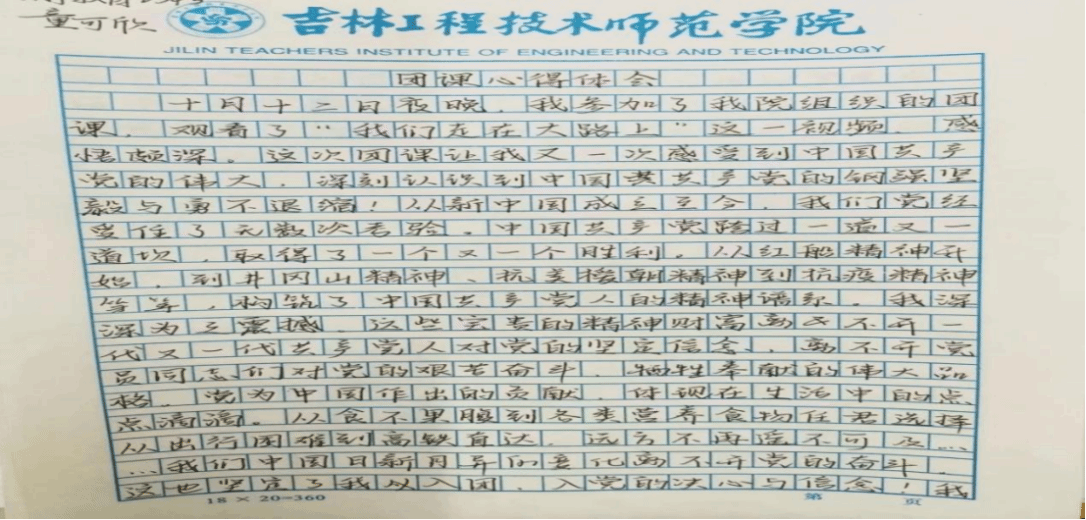 童可欣
吉林工程技术师范学院
JILIN TEACHERS INSTITUTE OF ENGINEERING AND TECHNOLOGY
团课心得体会
十月十二日夜晚，我参加了我院组织的团
课，观看了“我们走在大路上”这一视频，感
悟颇深。这次团课让我又一次感受到中国共产
党的伟大，深刻认识到中国共产党的钢强坚
毅与勇不退缩！从新中国成立至今，我们党经
受住了无数次考验。中国共产党跨过一道又一
道坎，取得了一个又一个胜利。从红船精神开
始，到井冈山精神、抗美援朝精神到抗疫精神
等等，构筑了中国共产党人的精神谱系。我深
深为之震撼，这些宝贵的精神财富离不开一
代又一代共产党人对党的坚定信念，离不开党
员同志们对党的艰苦奋斗，牺牲奉献的伟大品
格。党为中国作出的贡献，体现在生活中的点
点滴滴。从食不果腹到各类营养食物任君选择
从出行困难到高铁直达，远方不再遥不可及…
…我们中国日新月异的变化离不开党的奋斗，
这也坚定了我从入团，入党的决心与信念！我
18×20=360 第 页